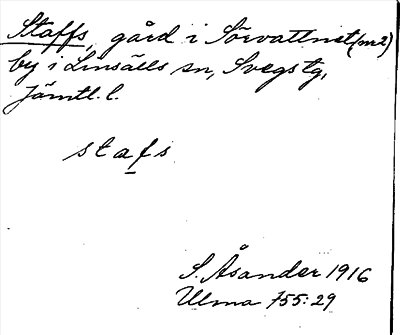 Staffs, gård i Sörvattnet (m2)
by i Linsälls sn, Svegs tg,
Jämtl. l.
stafs
S. Åsander 1916
Ulma 755:29